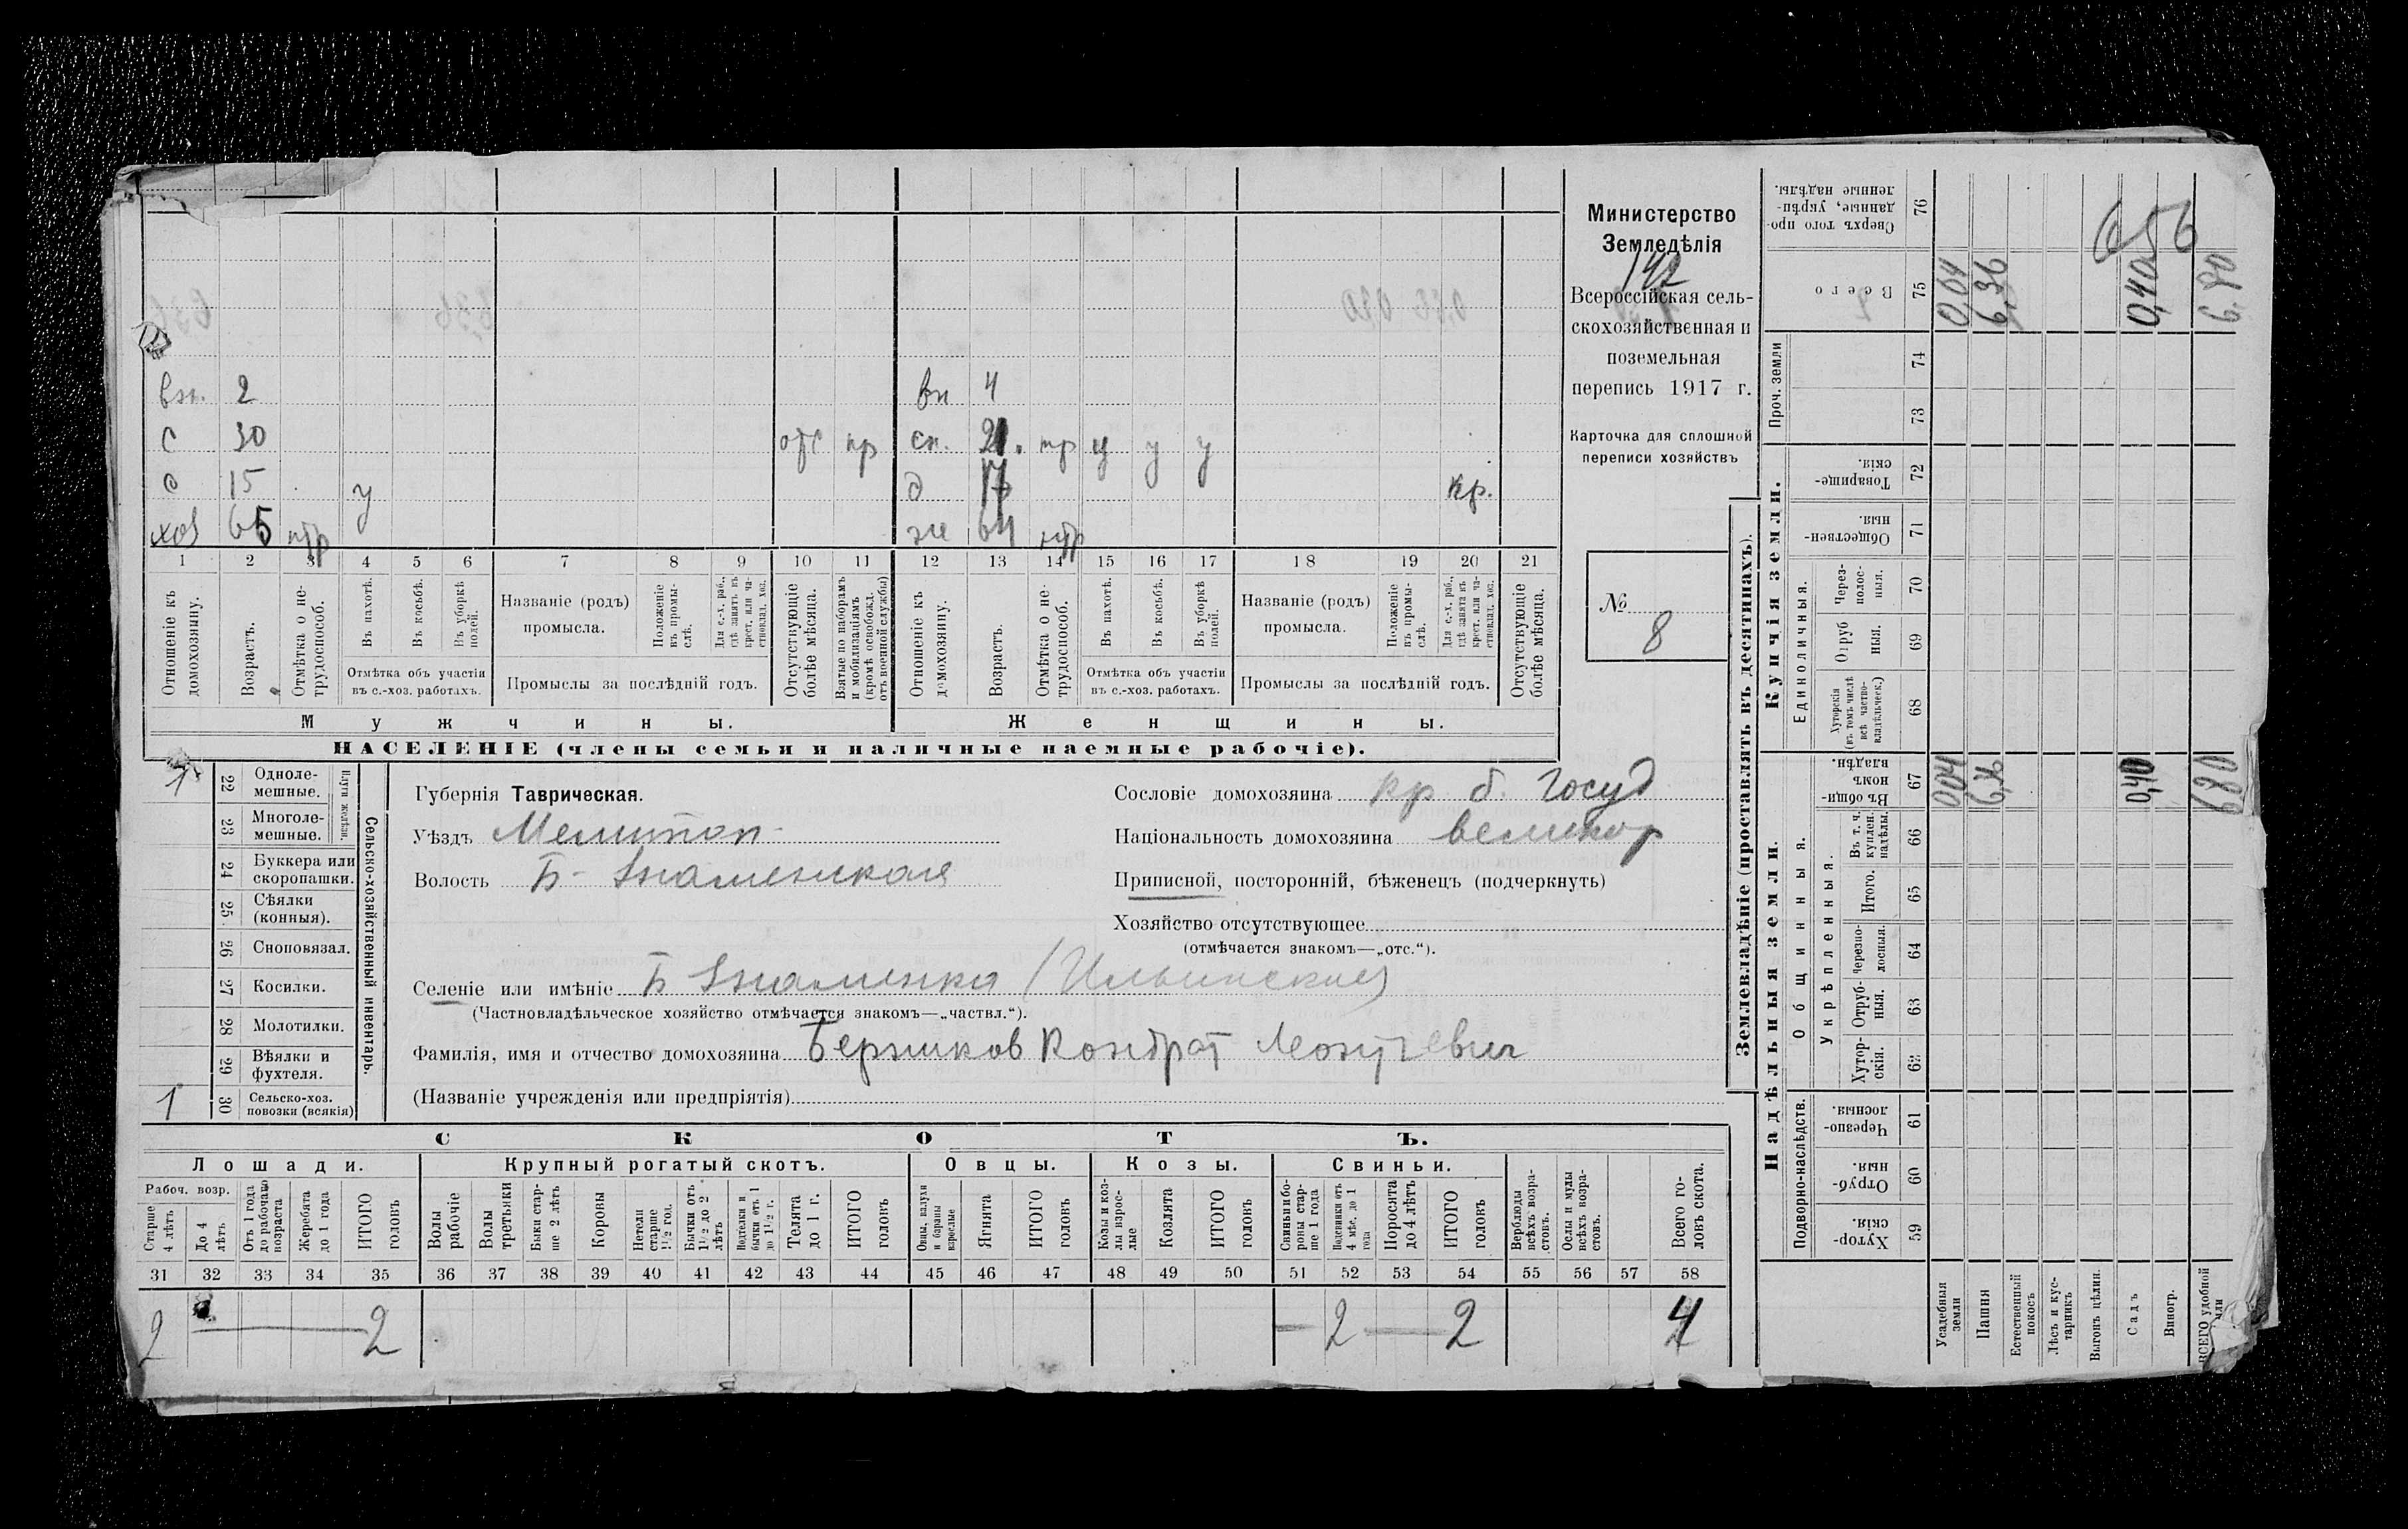 вн. 2 вн 4
с 30 отс пр сн. 21. тр у у у
с 15 у д 17 кр.
хоз 65 нтр же 64 нтр
1 2 3 4 5 6 7 8 9 10 11 12 13 14 15 16 17 18 19 20 21
Отношеніе къ домохозяину.
Возрастъ.
Отмѣтка о не-
трудоспособ.
Въ пахотѣ.
Въ косьбѣ.
Въ уборкѣ полей.
Отмѣтка объ участіи
въ с.-хоз. работахъ.
Названіе (родъ)
промысла.
Положеніе
въ промы-
слѣ.
Для с.-х. раб.,
гдѣ занятъ въ
крест. или ча-
стновлад. хоз.
Промыслы за послѣдній годъ.
Отсутствующіе
болѣе мѣсяца.
Взятые по наборамъ
и мобилизаціямъ
(кромѣ освобожд.
отъ военной службы)
Отношеніе къ
домохозяину.
Возрастъ.
Отмѣтка о не-
трудоспособ.
Въ пахотѣ.
Въ косьбѣ.
Въ уборкѣ
полей.
Отмѣтка объ участіи
въ с.-хоз. работахъ.
Названіе (родъ)
промысла.
Положеніе
въ промы-
слѣ.
Для с.-х. раб.,
гдѣ занята въ
крест. или ча-
стновлад. хоз.
Промыслы за послѣдній годъ.
Отсутствующіе
болѣе мѣсяца.
Мужчины. Женщины.
НАСЕЛЕНІЕ (члены семьи и наличные наемные рабочіе).
Министерство
Земледѣлія
142
Всероссійская сель-
скохозяйственная и
поземельная
перепись 1917 г.
Карточка для сплошной
переписи хозяйствъ
№
8
1 22 Одноле-
мешные.
23 Многоле-
мешные.
Плуги желѣзн.
24 Буккера или
скоропашки.
25 Сѣялки
(конныя).
26 Сноповязал.
27 Косилки.
28 Молотилки.
29 Вѣялки и
фухтеля.
1 30 Сельско-хоз.
повозки (всякія)
Сельско-хозяйственный инвентарь.
Губернія Таврическая.
Уѣздъ Мелитоп
Волость Б-Знаменская
Сословіе домохозяина кр б. госуд
Національность домохозяина великор
Приписной, посторонній, бѣженецъ (подчеркнуть)
Хозяйство отсутствующее
(отмѣчается знакомъ—„отс.“).
Селеніе или имѣніе Б Знаменка (Ильинское)
(Частновладѣльческое хозяйство отмѣчается знакомъ—„частвл.“).
Фамилія, имя и отчество домохозяина Берников Кондрат Леонтьевич
(Названіе учрежденія или предпріятія)
СКОТЪ.
Лошади. Крупный рогатый скотъ. Овцы. Козы. Свиньи.
Рабоч. возр.
Старше
4 лѣтъ
До 4
лѣтъ
Отъ 1 года
до рабочаго
возраста
Жеребята
до 1 года
ИТОГО
головъ
Волы
рабочіе
Волы
третьяки
Быки стар-
ше 2 лѣтъ
Коровы
Нетели
старше
1½ год.
Бычки отъ
1½ до 2
лѣтъ
Подтелки и
бычки отъ 1
до 1½ г.
Телята
до 1 г.
ИТОГО
головъ
Овцы, валухи
и бараны
взрослые
Ягнята
ИТОГО
головъ
Козы и коз-
лы взрос-
лые
Козлята
ИТОГО
головъ
Свиньи и бо-
ровы стар-
ше 1 года
Подсвинки отъ
4 мѣс. до 1
года
Поросята
до 4 лѣтъ
ИТОГО
головъ
Верблюды
всѣхъ возра-
стовъ.
Ослы и мулы
всѣхъ возра-
стовъ.
Всего го-
ловъ скота.
31 32 33 34 35 36 37 38 39 40 41 42 43 44 45 46 47 48 49 50 51 52 53 54 55 56 57 58
2 — 2 — 2 — 2 4
Землевладѣніе (проставлять въ десятинахъ).
Купчія земли.
Надѣльныя земли.
Сверхъ того про-
данные, укрѣп-
ленные надѣлы.
76
Всего
75 0,04 6,36 0,40 6,80
656
Проч. земли
74
73
Товарище-
скія.
72
Обществен-
ныя.
71
Единоличныя.
Через-
полос-
ныя.
70
Отруб
ныя.
69
Хуторскія
(въ томъ числѣ
всѣ частно-
владѣльческ.)
68
Общинныя.
Въ общи-
номъ
владѣн.
67 0,04 6,36 0,40 6,80
Укрѣпленныя.
Въ т. ч.
куплен.
надѣлы.
66
Итого.
65
Черезпо-
лосныя.
64
Отруб-
ныя.
63
Хутор-
скія.
62
Подворно-наслѣдств.
Черезпо-
лосныя.
61
Отруб-
ныя.
60
Хутор-
скія.
59
Усадебныя
земли
Пашня
Естественный
покосъ
Лѣсъ и кус-
тарникъ
Выгонъ цѣлин.
Садъ
Виногр.
ВСЕГО удобной